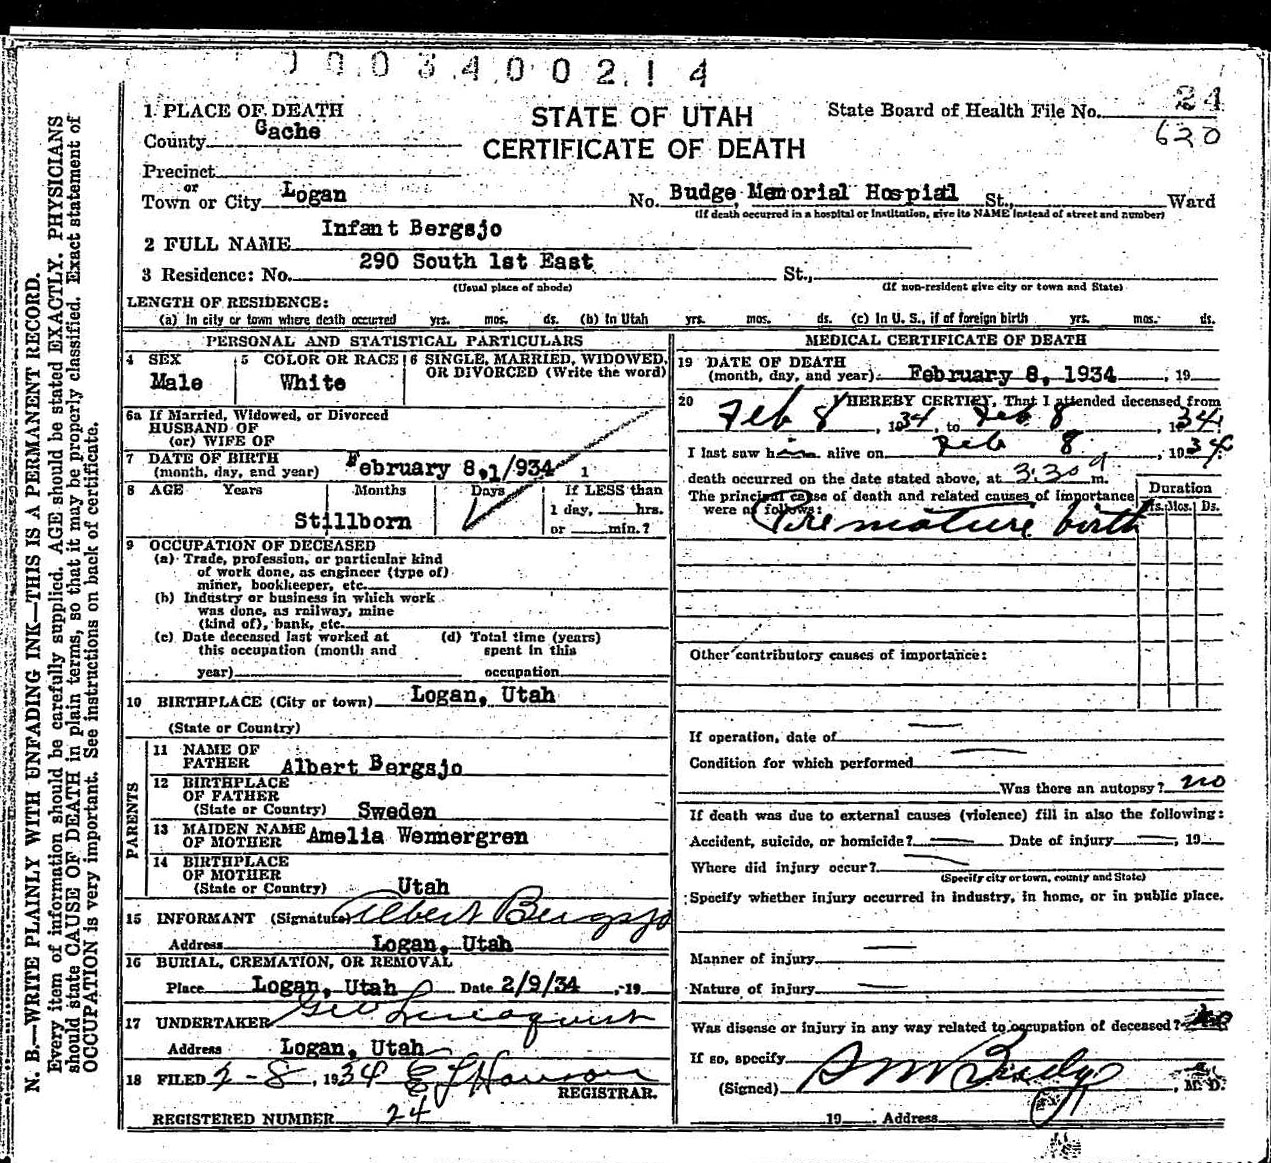 0003400214
1 PLACE OF DEATH
STATE OF UTAH
CERTIFICATE OF DEATH
State Board of Health File No. 24
620
County Cache
Precinct
or
Town or City Logan No. Budge Memorial Hospial St., Ward
(If death occurred in a hospital or institution, give its NAME instead of street and number)
2 FULL NAME Infant Bergsjo
3 Residence: No. 290 South 1st East St.,
(Usual place of abode) (If non-resident give city or town and State)
LENGTH OF RESIDENCE:
(a) In city or town where death occurred yrs. mos. ds. (b) In Utah yrs. mos. ds. (c) In U. S., if of foreign birth yrs. mos. ds.
PERSONAL AND STATISTICAL PARTICULARS
4 SEX Male
5 COLOR OR RACE White
6 SINGLE, MARRIED, WIDOWED, OR DIVORCED (Write the word)
6a If Married, Widowed, or Divorced
HUSBAND OF
(or) WIFE OF
7 DATE OF BIRTH
(month, day, and year) February 8,1/934 1
8 AGE Years Months Days If LESS than
1 day, hrs.
Stillborn or min.?
9 OCCUPATION OF DECEASED
(a) Trade, profession, or particular kind
of work done, as engineer (type of)
miner, bookkeeper, etc.
(b) Industry or business in which work
was done, as railway, mine
(kind of), bank, etc.
(c) Date deceased last worked at (d) Total time (years)
this occupation (month and spent in this
year) occupation
10 BIRTHPLACE (City or town) Logan, Utah
(State or Country)
PARENTS
11 NAME OF
FATHER Albert Bergsjo
12 BIRTHPLACE
OF FATHER
(State or Country) Sweden
13 MAIDEN NAME
OF MOTHER Amelia Wennergren
14 BIRTHPLACE
OF MOTHER
(State or Country) Utah
15 INFORMANT (Signature) Albert Bergsjo
Address Logan, Utah
16 BURIAL, CREMATION, OR REMOVAL
Place Logan, Utah Date 2/9/34 , 19
17 UNDERTAKER Geo Lindquist
Address Logan, Utah
18 FILED 2-8, 1934 E L Hanson
REGISTRAR.
REGISTERED NUMBER 24
MEDICAL CERTIFICATE OF DEATH
19 DATE OF DEATH
(month, day, and year) February 8, 1934 , 19
20 I HEREBY CERTIFY, That I attended deceased from
Feb 8, 1934, to Feb 8, 1934
I last saw him alive on Feb 8, 1934
death occurred on the date stated above, at 3:30 a m.
The principal cause of death and related causes of importance
were as follows: Duration
Yrs. Mos. Ds.
Premature birth
Other contributory causes of importance:
If operation, date of
Condition for which performed
Was there an autopsy? no
If death was due to external causes (violence) fill in also the following:
Accident, suicide, or homicide? Date of injury , 19
Where did injury occur?
(Specify city or town, county and State)
Specify whether injury occurred in industry, in home, or in public place.
Manner of injury
Nature of injury
Was disease or injury in any way related to occupation of deceased?
If so, specify
(Signed) Budge, M. D.
19 Address
N. B.—WRITE PLAINLY WITH UNFADING INK—THIS IS A PERMANENT RECORD.
Every item of information should be carefully supplied. AGE should be stated EXACTLY. PHYSICIANS
should state CAUSE OF DEATH in plain terms, so that it may be properly classified. Exact statement of
OCCUPATION is very important. See instructions on back of certificate.